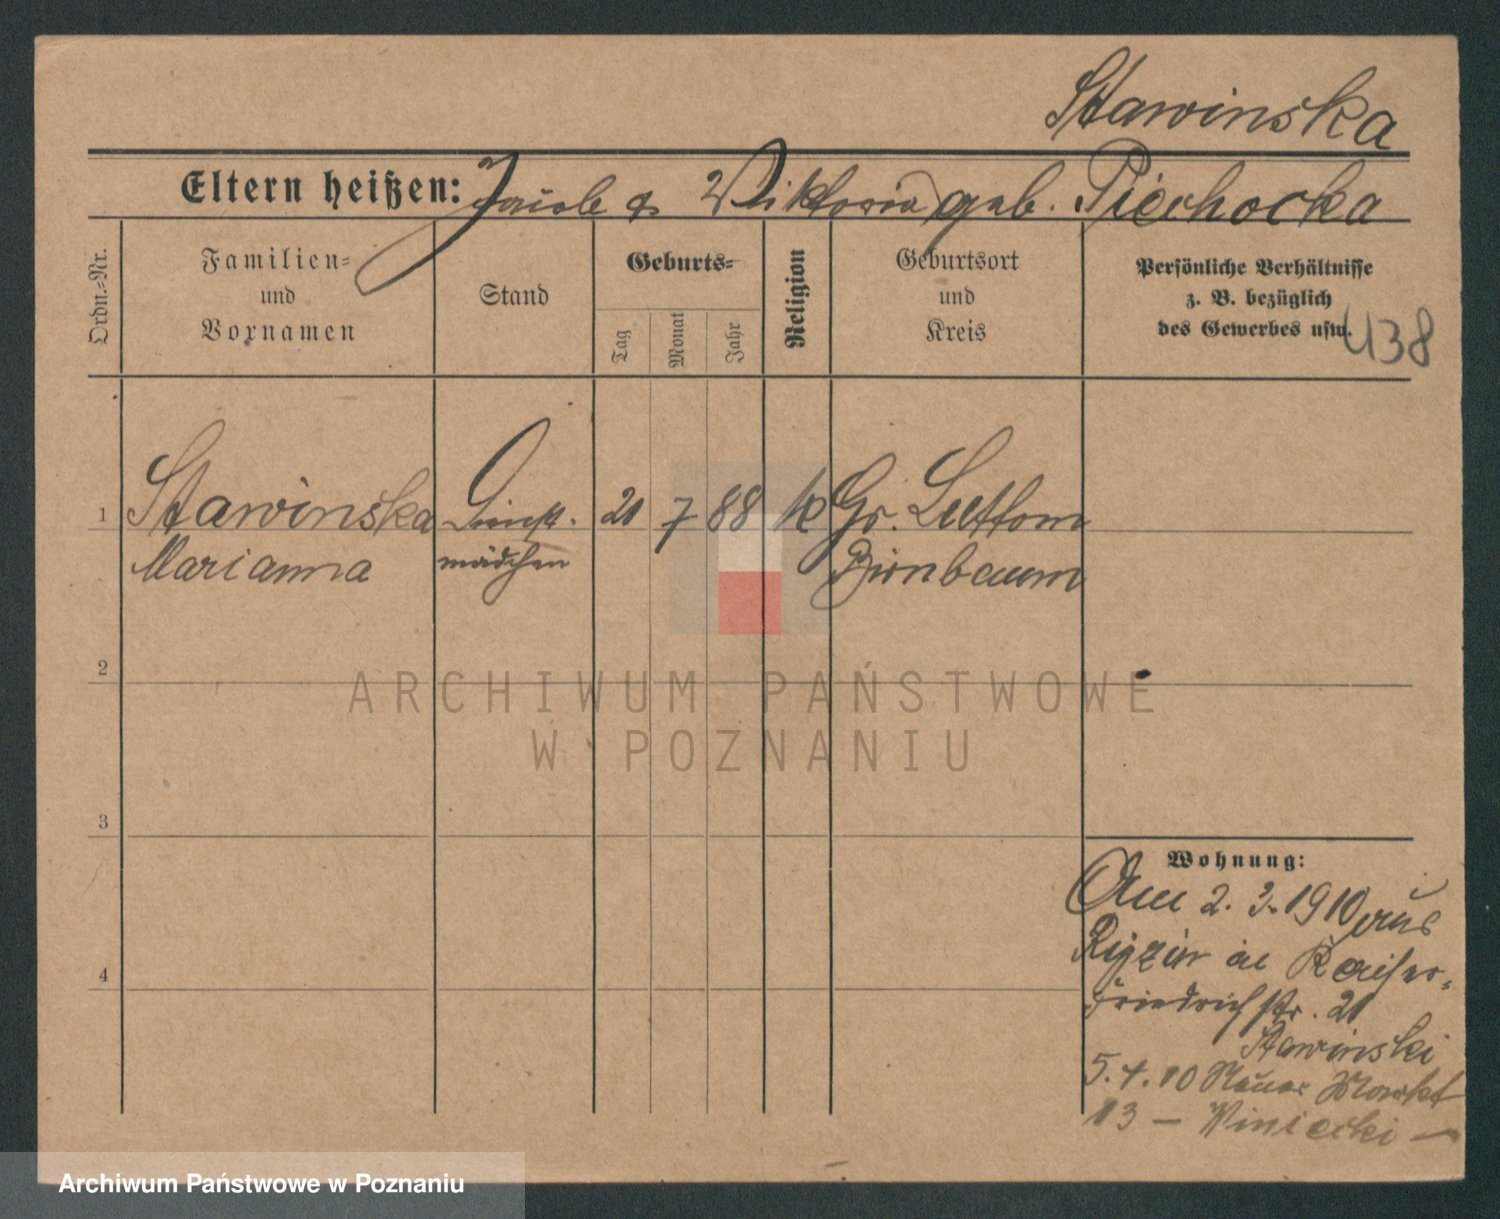 Stawinska
Eltern heißen: Jakob & Wiktoria geb. Piechocka
Ordn.-Nr.
Familien-
und
Vornamen
Stand
Geburts-
Tag
Monat
Jahr
Religion
Geburtsort
und
Kreis
Persönliche Verhältnisse
z. B. bezüglich
des Gewerbes usw.
438
1
Stawinska
Marianna
Dienst-
mädchen
21
7
88
k
Gr. Luttom
Birnbaum
2
3
4
Wohnung:
Am 2. 3. 1910 aus
in Kaiser-
Friedrichstr. 21
Stawinski
5.4.10 Neuer Markt
13 – Winiecki –
ARCHIWUM PAŃSTWOWE
W POZNANIU
Archiwum Państwowe w Poznaniu